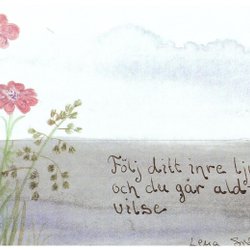 Följ ditt inre lj
och du går ald
vilse
Lena